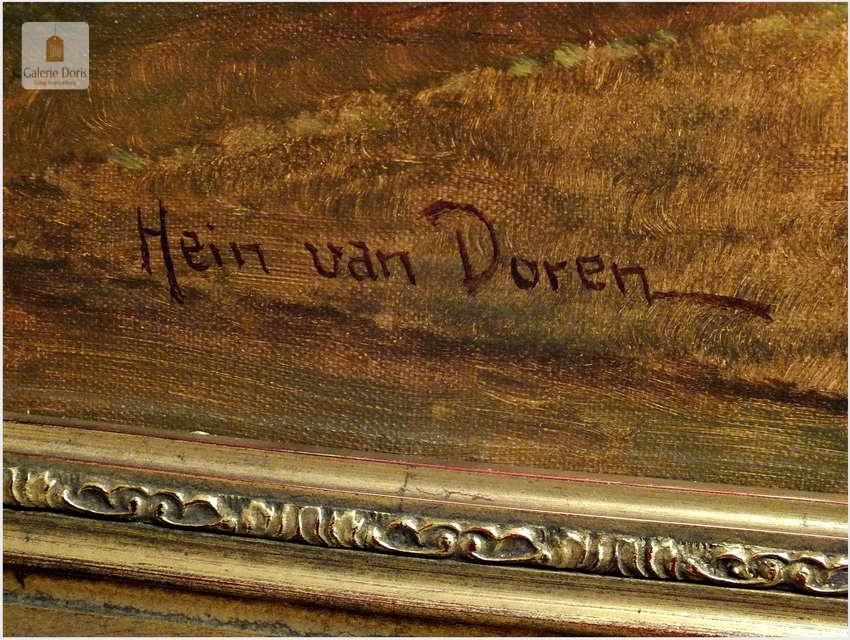 Galerie Doris
Hein van Doren